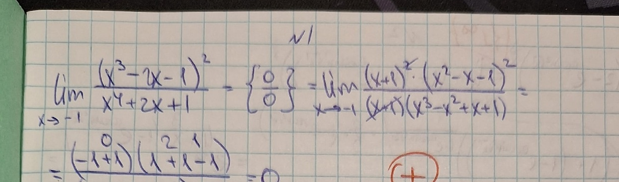 N1
lim x→-1 (x³-2x-1)² / (x⁴+2x+1) = {0/0} = lim x→-1 (x+1)²·(x²-x-1)² / ((x+1)(x³-x²+x+1)) =
= (-1+1)⁰(1+1-1)²¹ = 0
+